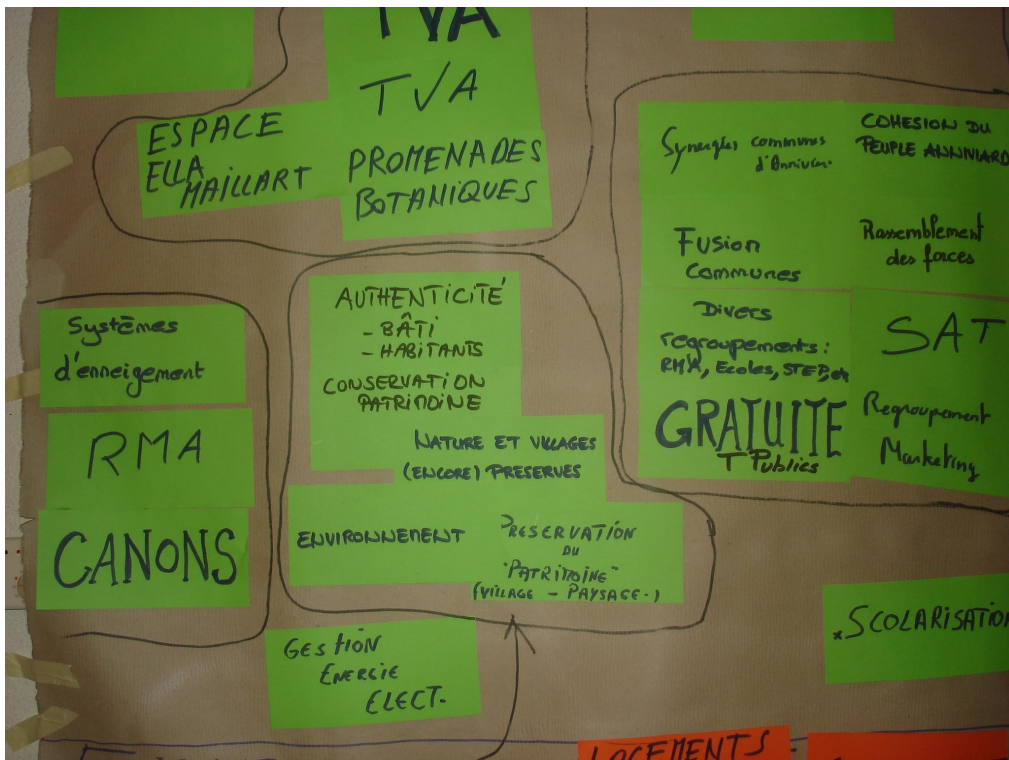 TVA
TVA
ESPACE
ELLA
MAILLART
PROMENADES
BOTANIQUES
Synergies communes
d'Anniv.
COHESION DU
PEUPLE ANNIVIARD
Fusion
Communes
Rassemblement
des forces
Divers
regroupements :
RMA, Ecoles, STEP, etc
SAT
GRATUITE
T Publics
Regroupement
Marketing
Systèmes
d'enneigement
RMA
CANONS
AUTHENTICITÉ
- BÂTI
- HABITANTS
CONSERVATION
PATRIMOINE
NATURE ET VILLAGES
(ENCORE) PRESERVES
ENVIRONNEMENT
PRESERVATION
DU
"PATRIMOINE"
(VILLAGE - PAYSAGE.)
GESTION
ENERGIE
ELECT.
SCOLARISATION
LOGEMENTS